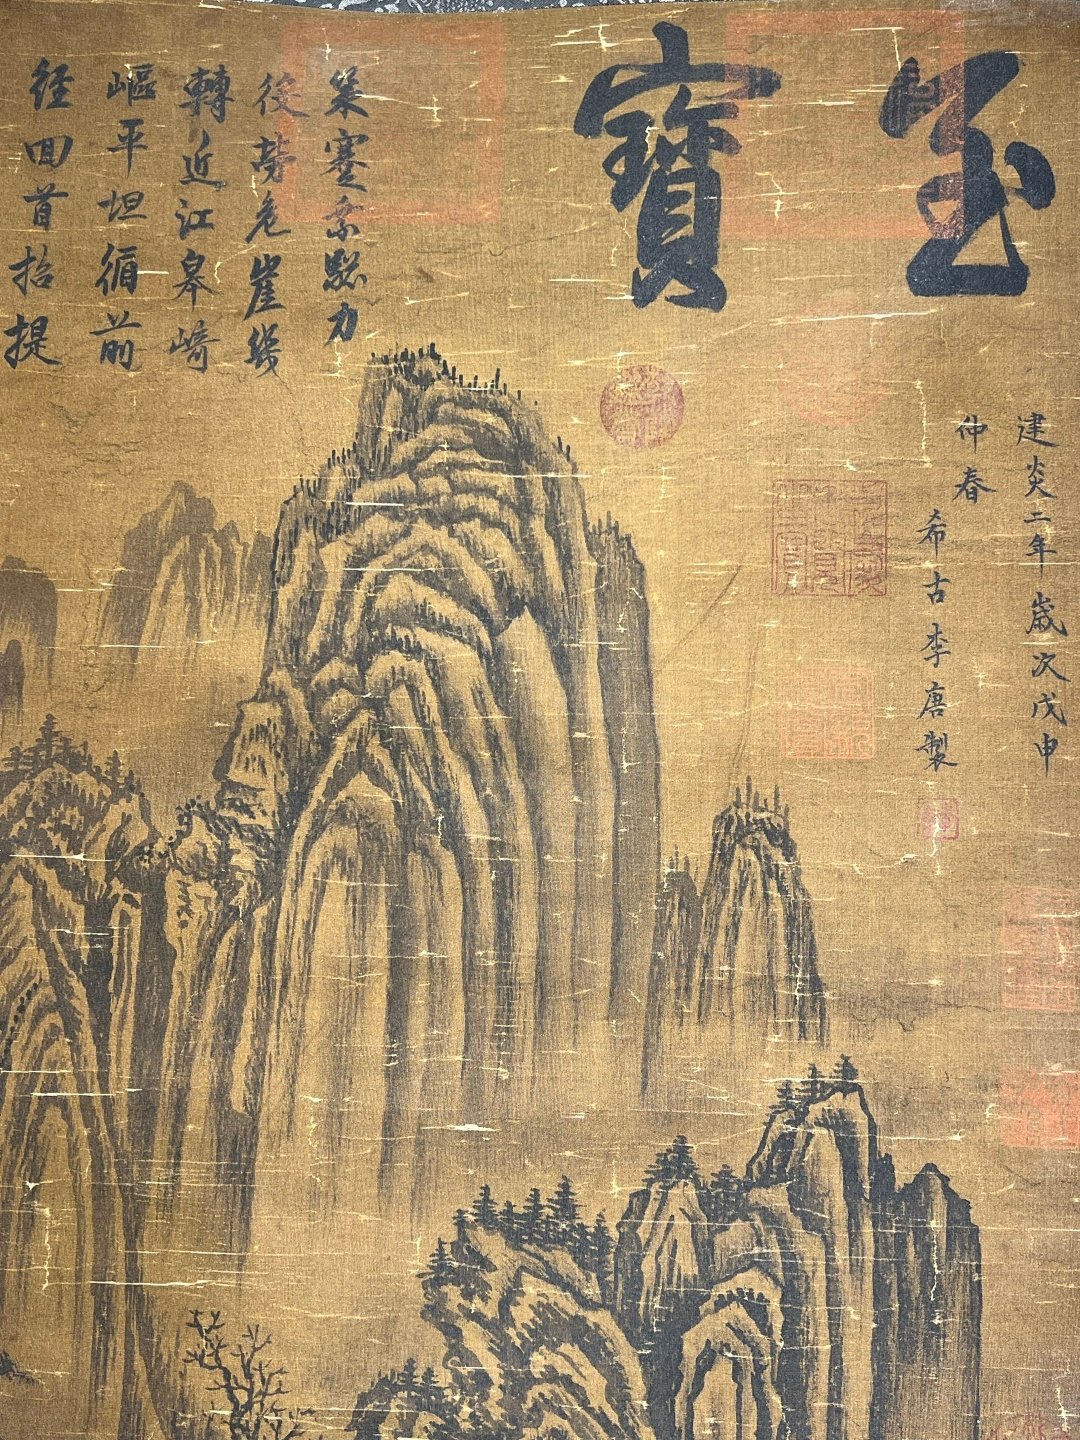 至寶
建炎二年歲次戊申
仲春
希古李唐製
策蹇乘驄力
後勞危崖幾
轉近江皋崎
嶇平坦循前
徑回首招提